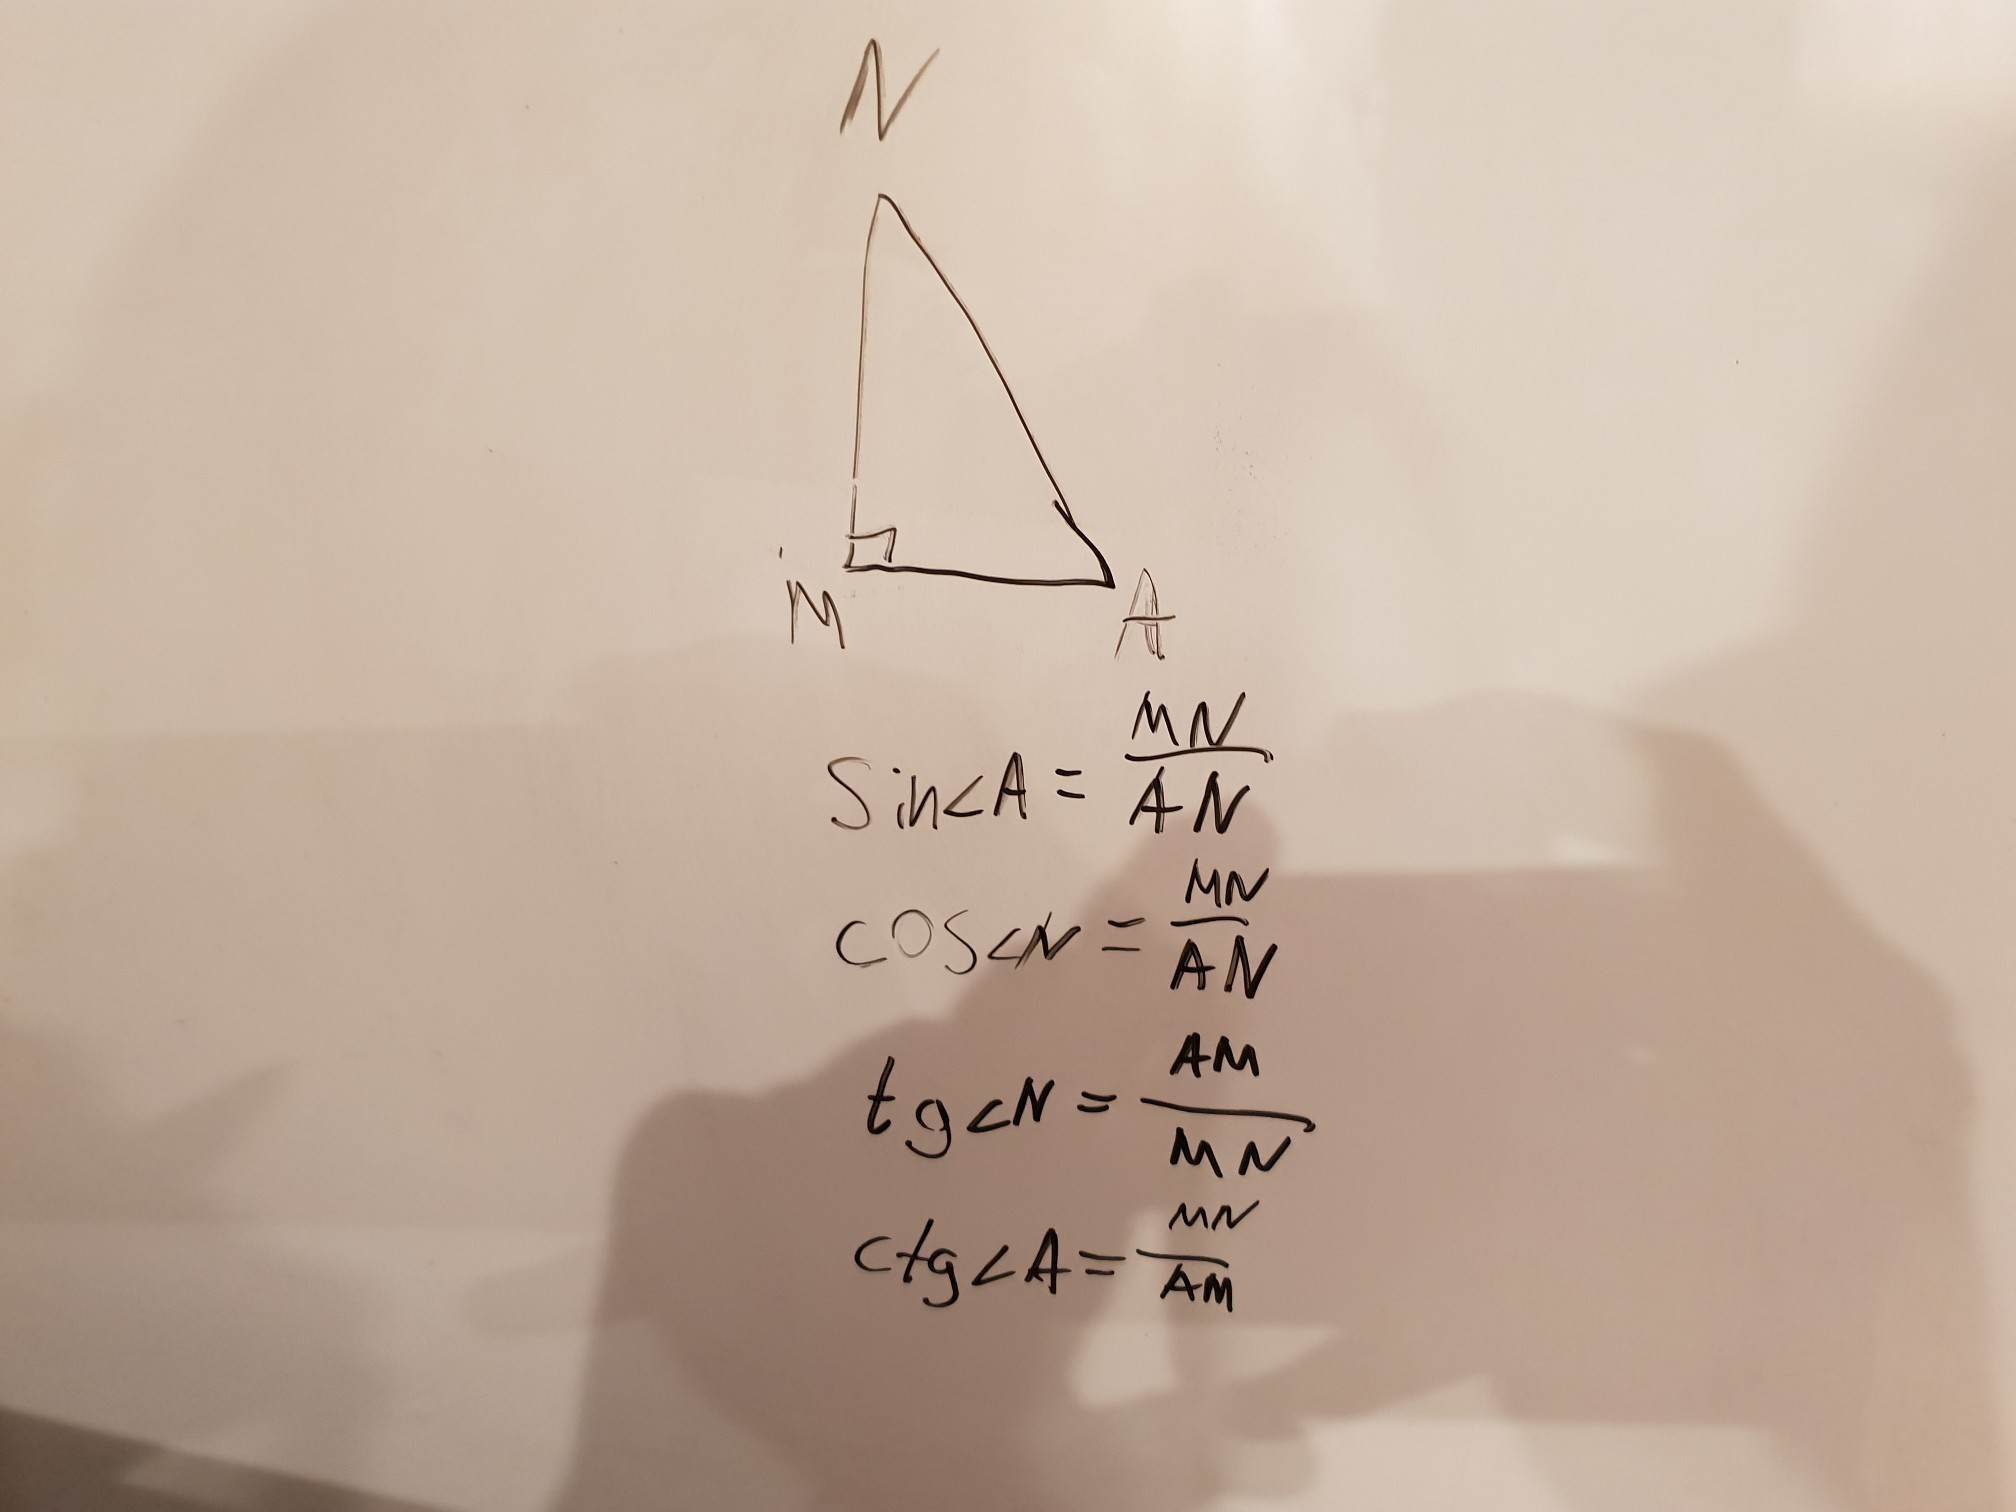 N
M A
Sin<A = MN/AN
cos<N = MN/AN
tg<N = AM/MN
ctg<A = MN/AM